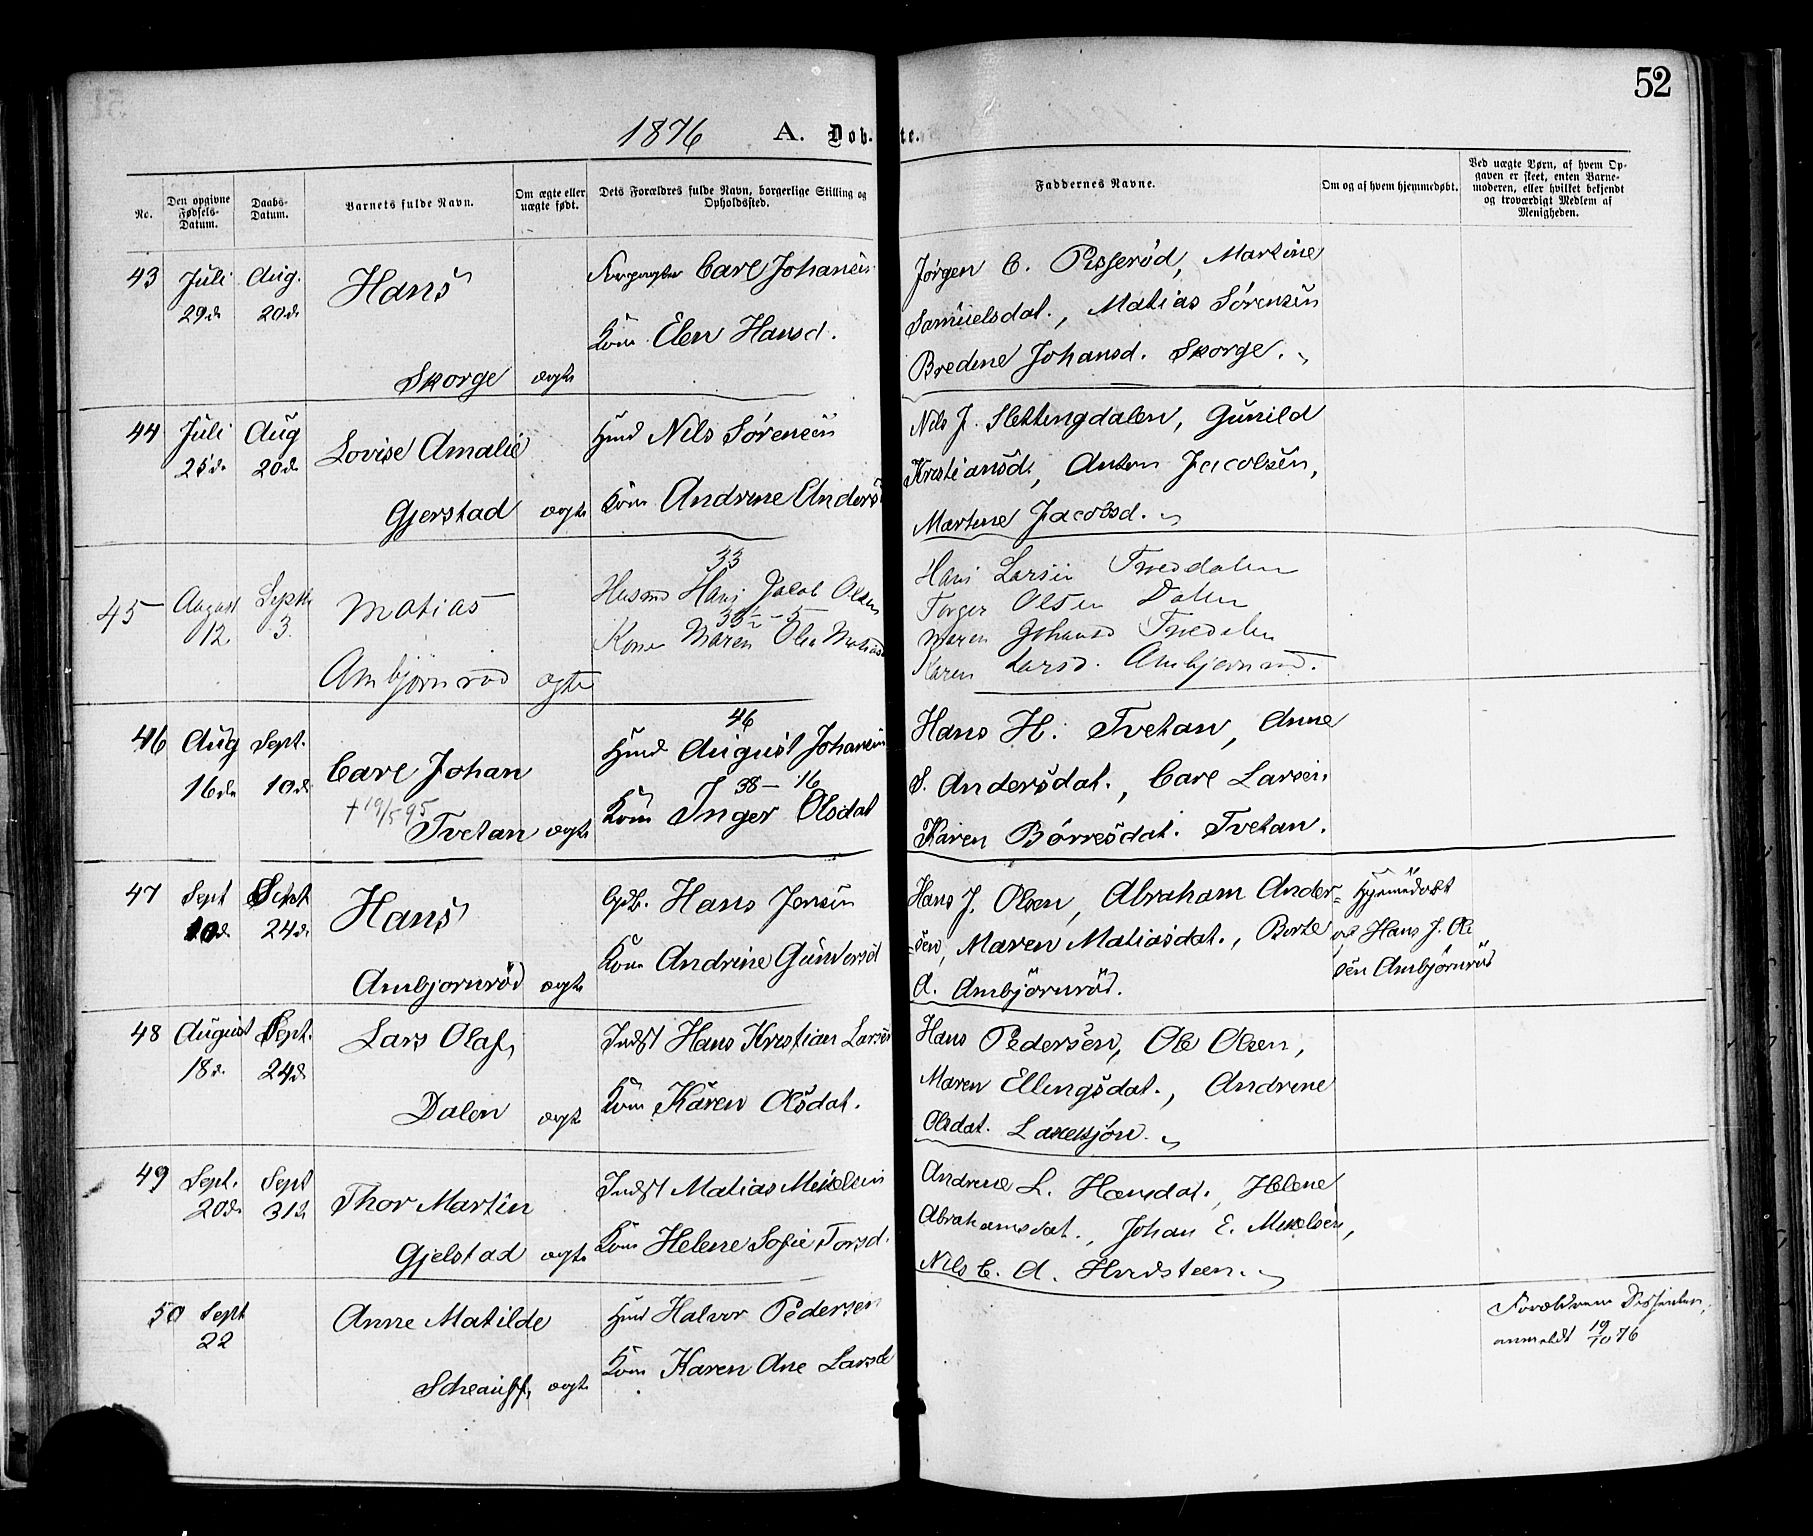 52
1876 A. Døb- te.
No.
Den opgivne Fødsels-Datum.
Daabs-Datum.
Barnets fulde Navn.
Om ægte eller uægte født.
Dets Forældres fulde Navn, borgerlige Stilling og Opholdssted.
Faddernes Navne.
Om og af hvem hjemmedøbt.
Ved uægte Børn, af hvem Opgaven er skeet, enten Barnemoderen, eller hvilket bekjendt og troværdigt Medlem af Menigheden.
43 Juli Aug. Hans Carl Johansen Jørgen C. Pisserød, Martine
29de 20de Samuelsdat., Matias Sørensen
Kone Elen Hansd.
Skorge ægte Bredine Johansd. Skorge.
44 Juli Aug Lovise Amalie Hmd Nils Sørensen Nils J. Slettingdalen, Gunild
25de 20de Kristiansd, Anton Jacobsen,
Gjerstad ægte Kone Andrine Anders Martine Jacobsd.
45 August Septb. Matias 33 Husmd Hans Jakob Olsen Hans Larsen Trædalen
12. 3. 33½-5 Torger Olsen Dalen
Kone Maren Olea Matiasd Maren Johansd Trædalen
Ambjørnrød ægte Karen Larsd. Ambjørnrød.
46 Aug Sept. Carl Johan 46 Hmd August Johansen Hans H. Tvetan, Anne
16de 10de 38-16 S. Andersdat., Carl Larsen
† 19/5 95 Tvetan ægte Kone Inger Olsdat Karen Børresdat. Tvetan.
47 Sept Sept Hans Gdb. Hans Jensen Hans J. Olsen, Abraham Ander- Hjemmedøbt
10de 24de sen, Maren Matiasdat., Borte af Hans J. Ol
Ambjørnrød ægte Kone Andrine Gundersd A. Ambjörnröd. sen Ambjörnröd
48 August Sept. Lars Olaf, Indst Hans Kristian Larsen Hans Pedersen, Ole Olsen,
18de 24de Maren Ellingsdat., Andrine
Dalen ægte Kone Karen Olsdat. Olsdat. Laxesjøn.
49 Sept. Sept Thor Martin Indst Matias Mikelsen Andrine L. Hansdat., Helene
20de 31te Abrahamsdat., Johan E. Mikelsen,
Gjelstad ægte Kone Helene Sofie Torsd. Nils C. A. Hvidsteen.
50 Sept Anne Matilde Hmd Halvor Pedersen Forældrene Dissentere,
22 anmeldt 19/10 76
ægte Kone Karen Ane Larsd